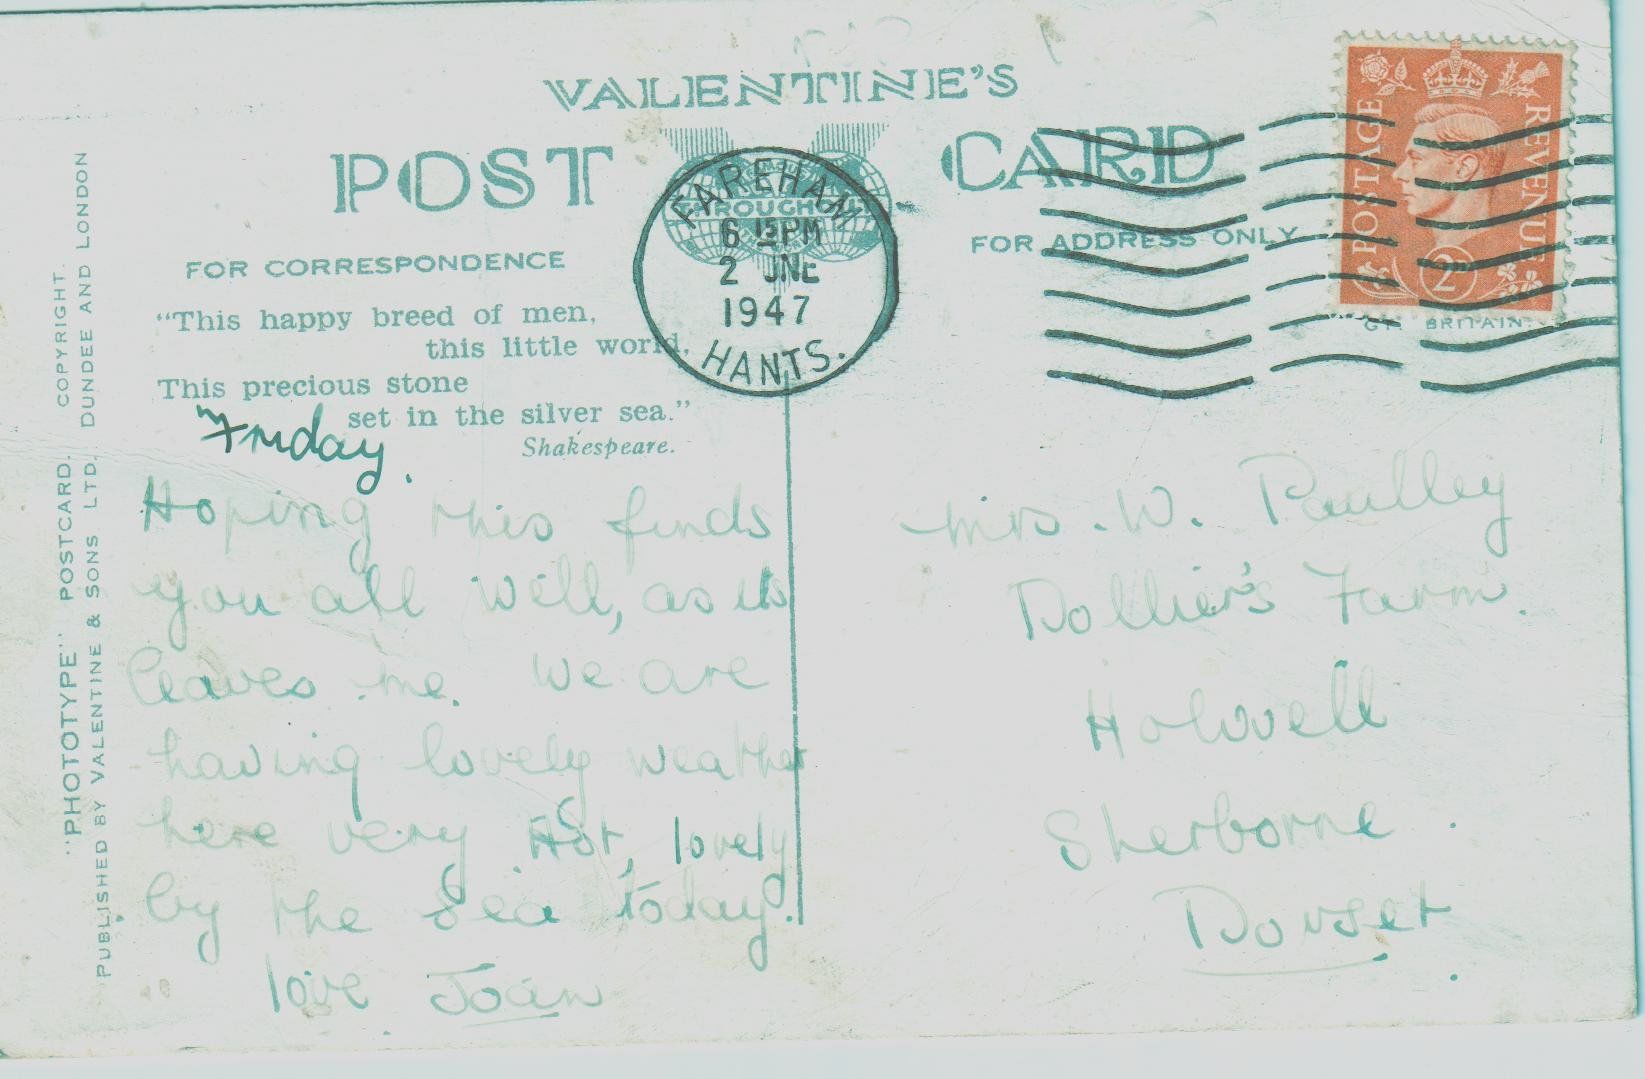 VALENTINE'S
POST CARD
FOR CORRESPONDENCE
FOR ADDRESS ONLY
"This happy breed of men,
this little world,
This precious stone
set in the silver sea."
Shakespeare.
FAREHAM
6 15 PM
2 JNE
1947
HANTS.
THROUGHOUT
POSTAGE
REVENUE
2D
GT. BRITAIN.
"PHOTOTYPE" POSTCARD. COPYRIGHT.
PUBLISHED BY VALENTINE & SONS LTD. DUNDEE AND LONDON
Friday.
Hoping this finds
you all well, as it
leaves me. We are
having lovely weather
here very Hot, lovely
by the Sea today.
love Joan
Mrs. W. Paulley
Dollier's Farm.
Holwell
Sherborne.
Dorset.